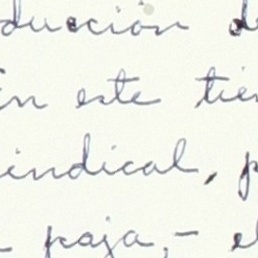 ducción d
in este tie
indical, p
paja,- el